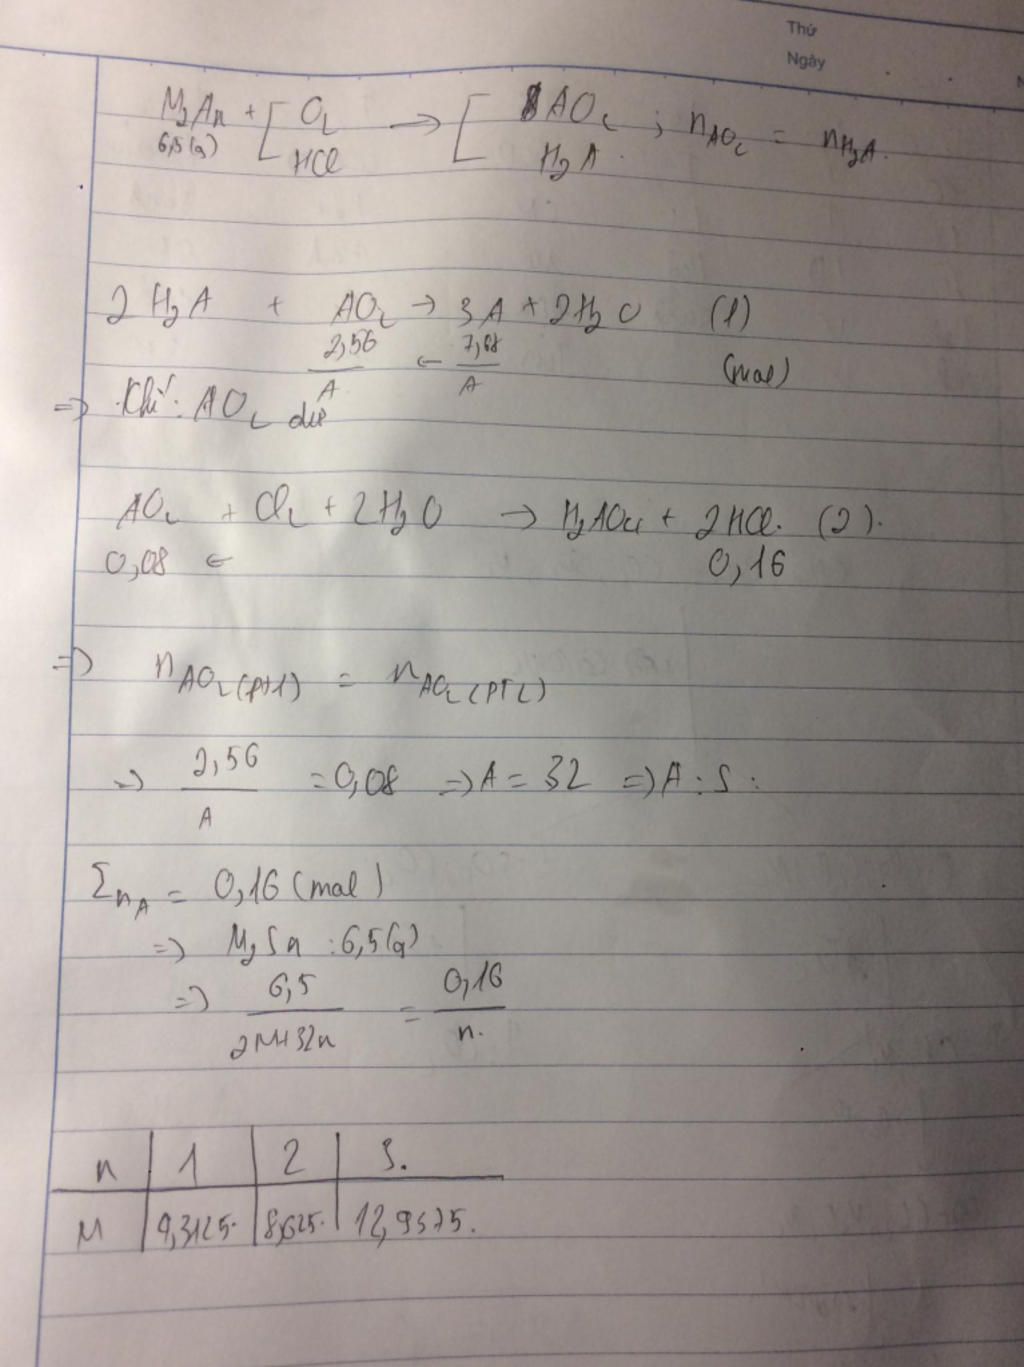 Thứ
Ngày
M₂Aₙ + [ O₂ → [ AO₂ ; n AO₂ = n H₂A.
6,5(g) HCl H₂A.
2 H₂A + AO₂ → 3A + 2H₂O (1)
2,56/A ← 7,68/A (mol)
=> Khí: AO₂ dư
AO₂ + Cl₂ + 2H₂O → H₂AO₄ + 2HCl. (2).
0,08 ← 0,16
=> n AO₂(pt1) = n AO₂(PT2)
=> 2,56/A = 0,08 => A = 32 => A : S .
Σn A = 0,16 (mol)
=> M₂Sₙ : 6,5(g)
=> 6,5/2M+32n = 0,16/n.
n | 1 | 2 | 3.
M | 4,3125. | 8,625. | 12,9375.